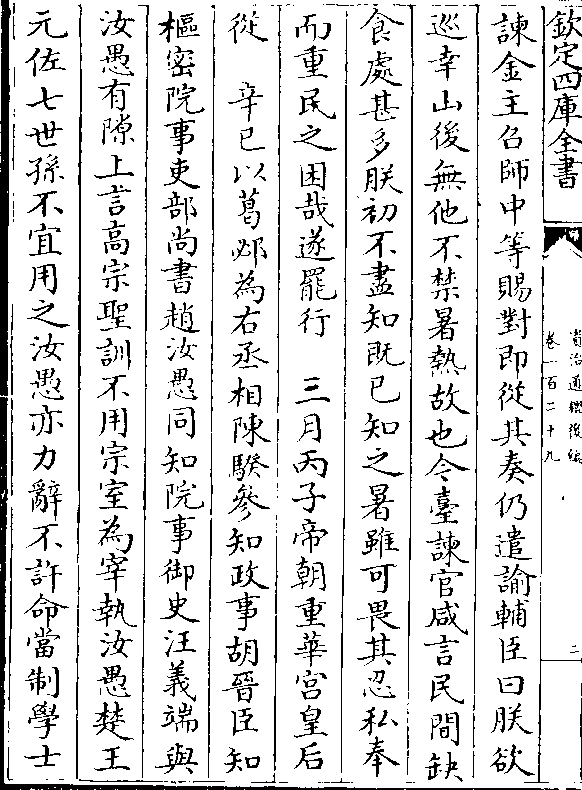 欽定四庫全書
資治通鑑後編
卷一百二十九
二
諫金主召師中等賜對即從其奏仍遣諭輔臣曰朕欲
巡幸山後無他不禁暑熱故也今臺諫官咸言民間缺
食處甚多朕初不盡知既已知之暑雖可畏其忍私奉
而重民之困哉遂罷行　三月丙子帝朝重華宫皇后
從　辛巳以葛邲為右丞相陳騤參知政事胡晉臣知
樞密院事吏部尚書趙汝愚同知院事御史汪義端與
汝愚有隙上言高宗聖訓不用宗室為宰執汝愚楚王
元佐七世孫不宜用之汝愚亦力辭不許命當制學士